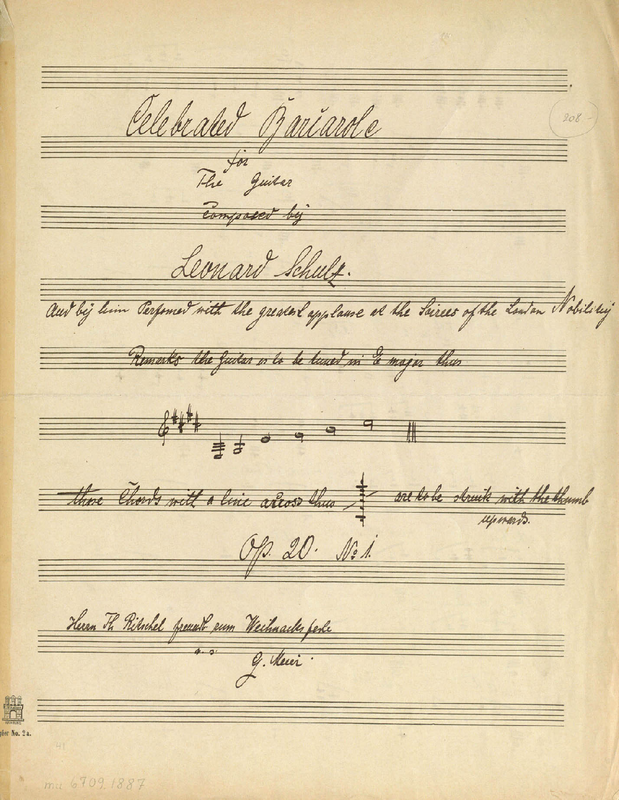 Celebrated Barcarole
308 -
for
The Guitar
Composed by
Leonard Schulz.
And by him Perfomed with the greatest applause at the Soirees of the London Nobility
Remarks the Guitar is to be tuned in E major thus
those Chords with a line across thus are to be struik with the thumb
upwards.
Op. 20. No 1.
Herrn Th Ritschel zum Weihnachsfeste
G. Meier.
No. 2 a.
mu 6709.1887